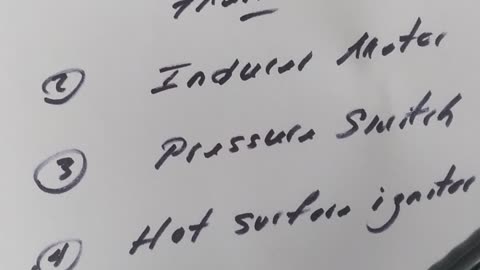 ② Inducer Motor
③ Pressure Switch
④ Hot surface igniter